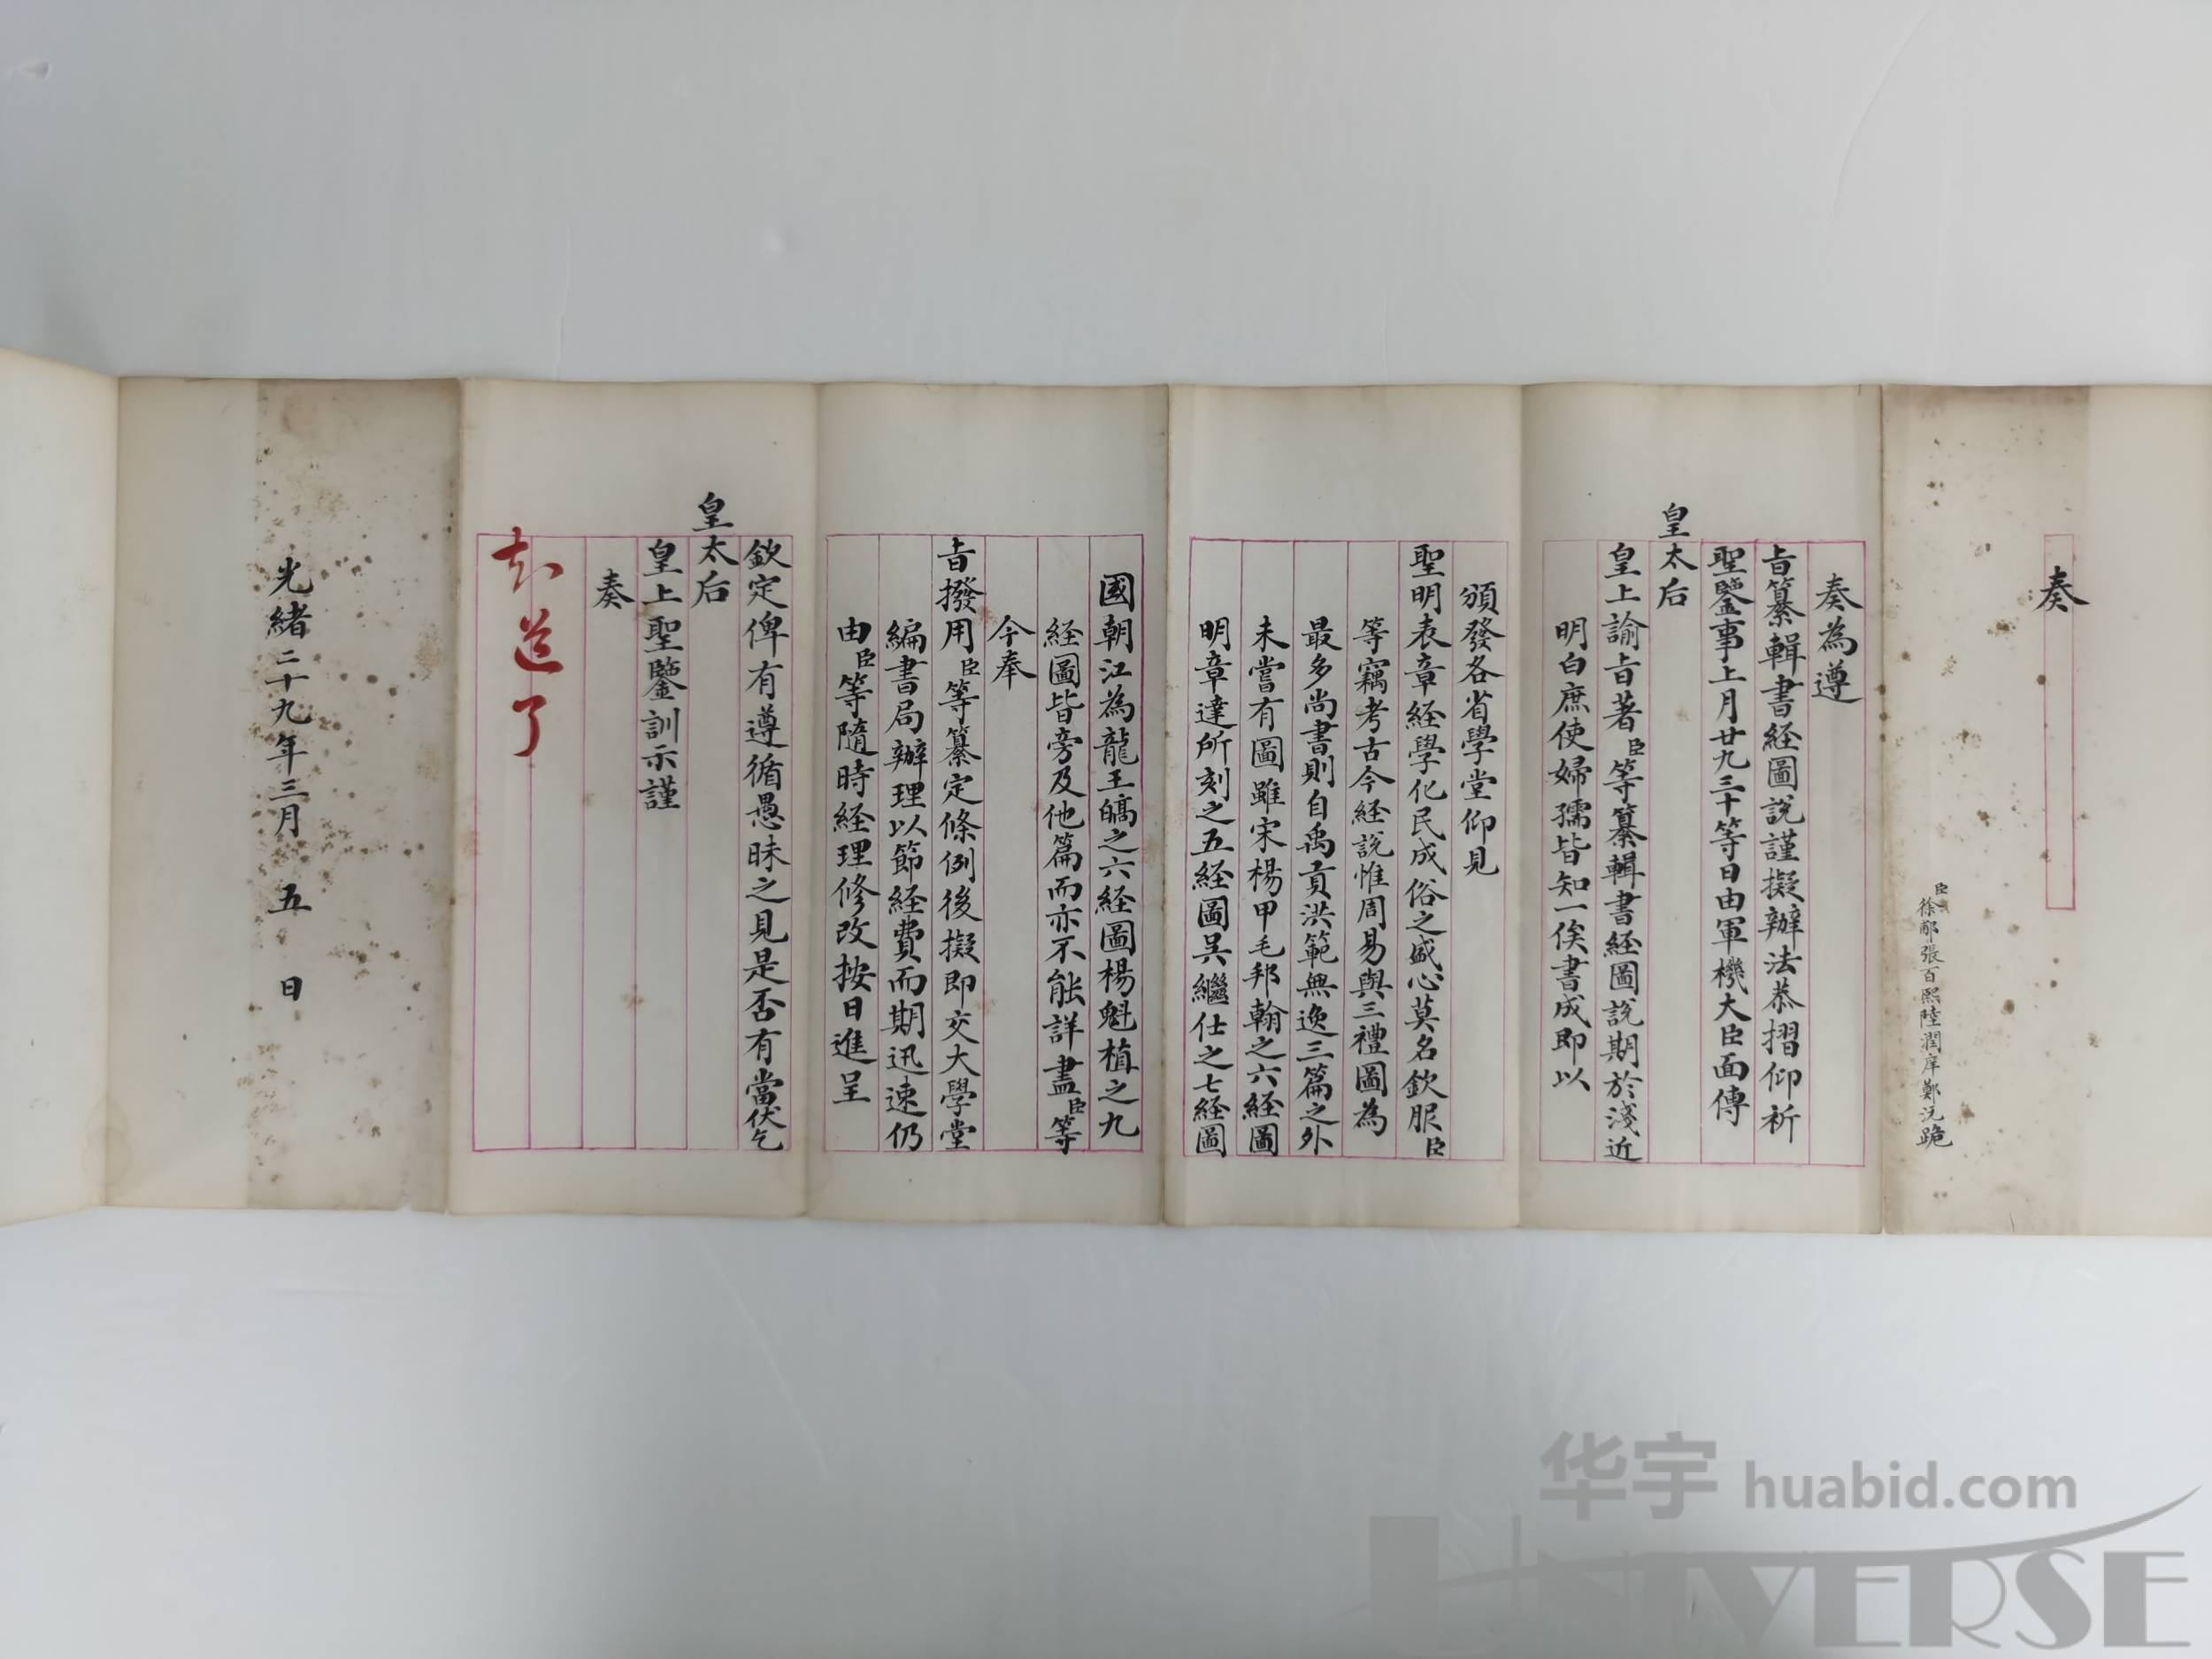 奏
臣徐郙張百熙陸潤庠鄭沅跪
奏為遵
旨纂輯書経圖説謹擬辦法恭摺仰祈
聖鑒事上月廿九三十等日由軍機大臣面傳
皇太后
皇上諭旨著臣等纂輯書経圖説期於淺近
明白庶使婦孺皆知一俟書成即以
頒發各省學堂仰見
聖明表章経學化民成俗之盛心莫名欽服臣
等竊考古今経説惟周易與三禮圖為
最多尚書則自禹貢洪範無逸三篇之外
未嘗有圖雖宋楊甲毛邦翰之六経圖
明章達所刻之五経圖吳繼仕之七経圖
國朝江為龍王皜之六経圖楊魁植之九
経圖皆旁及他篇而亦不能詳盡臣等
今奉
旨撥用臣等纂定條例後擬即交大學堂
編書局辦理以節経費而期迅速仍
由臣等隨時経理修改按日進呈
欽定俾有遵循愚昧之見是否有當伏乞
皇太后
皇上聖鑒訓示謹
奏
知道了
光緒二十九年三月 五 日
华宇 huabid.com
UNIVERSE